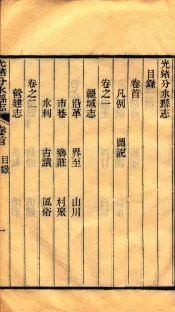 光緒分水縣志
目錄
卷首
凡例 圖說
卷之一
疆域志
沿革 界至 山川
市巷 鄉莊 村聚
水利 古蹟 風俗
卷之二
營建志
光緒分水縣志
卷首
目錄
一